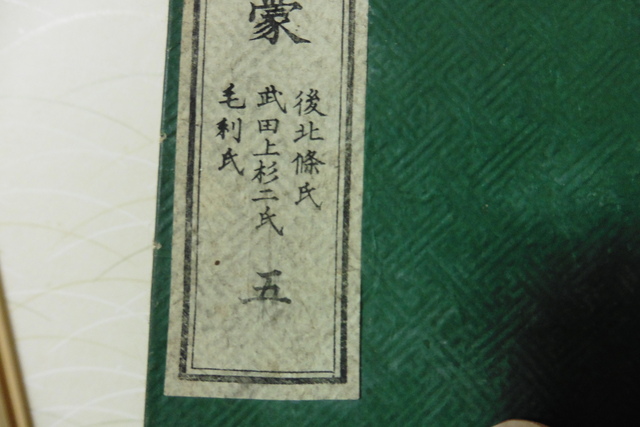 蒙
後北條氏
武田上杉二氏
毛利氏
五